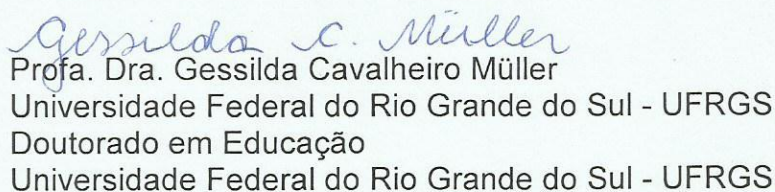 Gessilda C. Müller
Profa. Dra. Gessilda Cavalheiro Müller
Universidade Federal do Rio Grande do Sul - UFRGS
Doutorado em Educação
Universidade Federal do Rio Grande do Sul - UFRGS